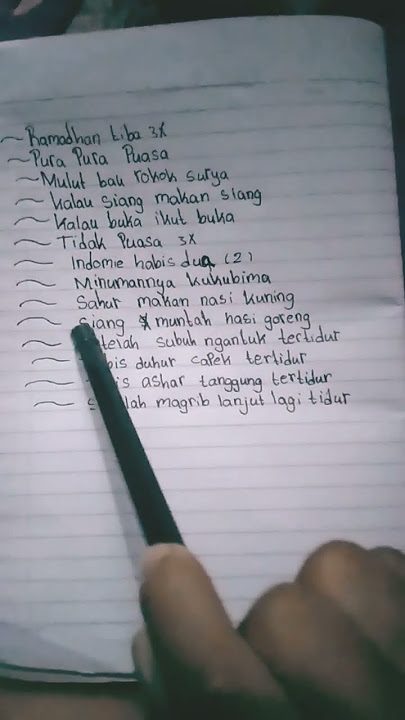 ~ Ramadhan tiba 3X
~ Pura Pura Puasa
~ Mulut bau rokok surya
~ kalau siang makan siang
~ kalau buka ikut buka
~ Tidak Puasa 3X
~ Indomie habis dua (2)
~ Minumannya kukubima
~ Sahur makan nasi kuning
~ Siang muntah nasi goreng
~ subuh ngantuk tertidur
~ duhur capek tertidur
~ ashar tanggung tertidur
~ magrib lanjut lagi tidur